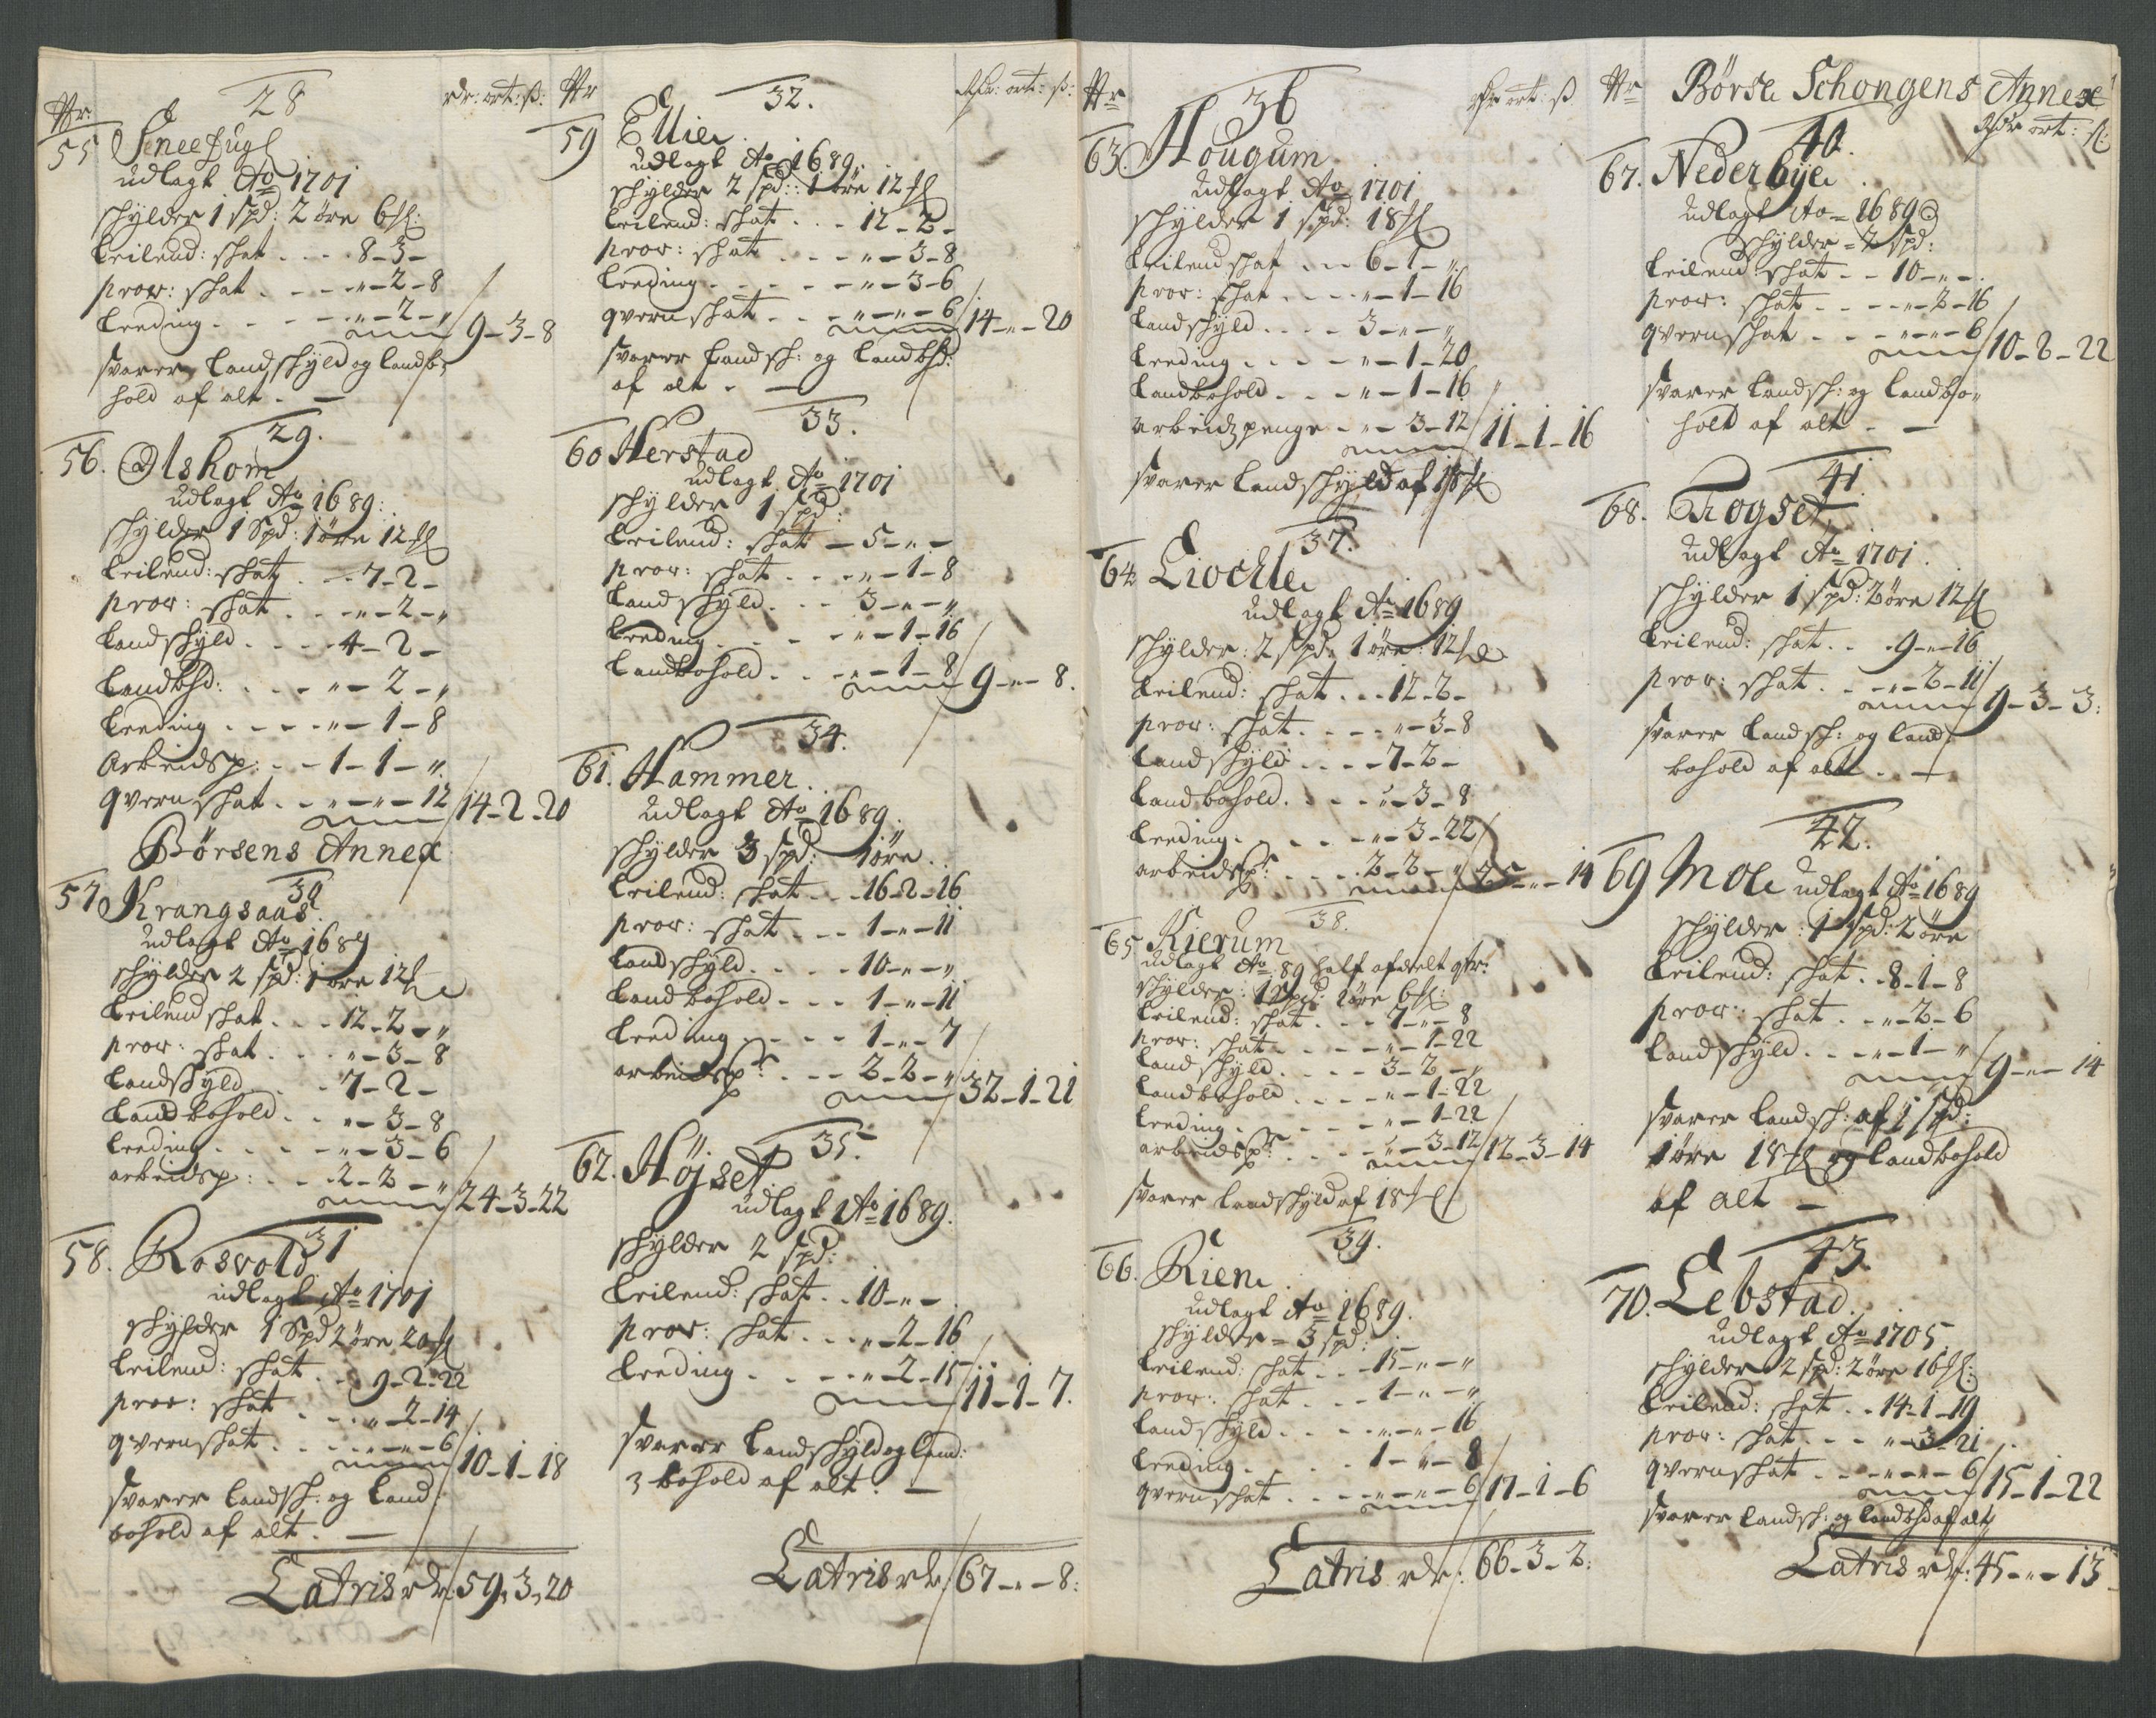 Nr: 28 rdr: ort: ß:
55 Sneefugl
udlagt Ao 1701
schÿlder 1 spd: 2 öre 6 sl:
Leilend: skat . . . . 8-3-
prow: skat . . . . „-2-8
Leeding . . . . „-2-„ 9-3-8
svarer Landschÿld og Landb-
hold af alt . —
29.
56. Olshom
udlagt Ao 1689:
schÿlder 1 Spd: 1 öre 12 sl
Leilend: skat . . . 7-2-
prow: skat . . . „-2-„
Landschÿld . . . . 4-2-
Landbhd: . . . „-2-„
Leeding . . . . „-1-8
Arbeidsp: . . 1-1-„
qvernskat . . „-„-12 14-2-20
Börsens Annex
30
57 Krangsaas
udlagt Ao 1689
schÿlder 2 spd: 1 öre 12 sl
Leilend skat . . . 12-2-„
prow: skat . . . „-3-8
Landschÿld . . . 7-2-
Landbohold . . „-3-8
Leeding . . . . „-3-6
arbeidsp: . . 2-2-„ 24-3-22
31
58. Rosvold
udlagt Ao 1701
schÿlder 1 Spd 2 öre 20 sl
Leilend: skat . . 9-2-22
prow: skat . . . „-2-14
qvernskat . . . „-„-6 10-1-18
svarer landsch: og Land
bohold af alt . —
Latris rdr: 59-3-20
Nr 32. Rdr: ort: ß:
59 Ellie
udlagt Ao 1689:
schÿlder 2 spd: 1 öre 12 sl
Leilend: skat . . . 12-2-
prow: skat . . . . „-3-8
Leeding . . . . . „-3-6
qvernskat . . . „-„-6 14-„-20
svarer Landsch: og Landbhd:
af alt . —
33.
60 Herstad
udlagt Ao 1701
schÿlder 1 spd:
Leilend: skat — 5-„-
prow: skat . . . . „-1-8
Landschÿld . . . 3-„-„
Leeding . . . . „-1-16
Landbohold . . . „-1-8 9-„-8.
34.
61. Hammer
udlagt Ao 1689.
schÿlder 3 spd: 1 öre
Leilend: skat . . . 16-2-16
prow: skat . . . 1-„-11
Landschÿld . . . . 10-„-„
Landbohold . . . 1-„-11
Leeding . . . . 1-„-7
arbeidsp: . . . 2-2-„ 32-1-21
35.
62. Höjset
udlagt Ao 1689.
schÿlder 2 spd:
Leilend: skat . . 10-„-
prow: skat . . . „-2-16
Leeding . . . . „-2-15 11-1-7.
svarer Landschÿld og Land:
bohold af alt . —
Latris rdr 67-„-8:
Nr 36 Rdr ort: ß
63 Hougum
udlagt Ao 1701
schÿlder 1 spd: 18 sl
Leilend skat . . . 6-1-„
prow: skat . . . . „-1-16
Landschÿld . . . . 3-„-„
Leeding . . . . . „-1-20
Landbohold . . . „-1-16
arbeidzpenge . . „-3-12 11-1-16
svarer Landschÿld af 18 sl
37.
64. Liochle
udlagt Ao 1689
schÿlder: 2 spd: 1 öre: 12 sl
Leilend: skat . . . 12-2-
prow: skat . . . . „-3-8
Landschÿld . . . . 7-2-
Landbohold . . . . „-3-8
Leeding . . . . . „-3-22
arbeidsp: . . . . 2-2-„ 25-„-14
38.
65 Kierum
udlagt Ao 89 half afdeelt qtr:
schÿlder: 1 Spd: 1 öre 6 sl:
Leilend: skat . . . 7-„-8
prow: skat . . . . „-1-22
Landschÿld . . . . 3-2-„
Landbohold . . . . „-1-22
Leeding . . . . . „-1-22
arbeidsp: . . . . „-3-12 12-3-14
svarer Landschÿld af 18 sl
39.
66. Kien
udlagt Ao 1689.
schÿlder = 3 spd:
Leilend: skat . . . 15-„-„
prow: skat . . . 1-„-„
Landschÿld . . . . „-„-16
Leeding . . . . 1-„-8
qvernskat . . . . „-„-6 17-1-6
Latris rdr: 66-3-2:
Nr Börse Schongens Annexe
Rdr ort: sl:
40.
67. Nederbÿe
udlagt Ao 1689
schÿlder = 2 spd:
Leilend: skat . . 10-„-
prow: skat . . . . „-2-16
qvernskat . . . „-„-6 10-2-22
svarer Landsch: og Landbo-
hold af alt . —
41.
68. Trogset
udlagt Ao 1701.
schÿlder 1 spd: 2 öre 12 sl
Leilend: skat . . 9-„-16
prow: skat . . . „-2-11 9-3-3:
svarer Landsch: og Land:
bohold af alt . . —
42.
69 Moe udlagt Ao 1689
schÿlder: 1 spd: 2 öre
Leilend: skat . . 8-1-8
prow: skat . . „-2-6
Landschÿld . . . „-1-„ 9-„-14
svarer Landsch: af 1 spd:
1 öre 18 sl og Landbohold
af alt —
43.
70. Lebstad
udlagt Ao 1705
schÿlder 2 spd: 2 öre 16 sl:
Leilend: skat . . 14-1-19
prow: skat . . . „-3-21
qvernskat . . . „-„-6 15-1-22
svarer Landsch: og Landbhd af alt
Latris rdr: 45-„-13